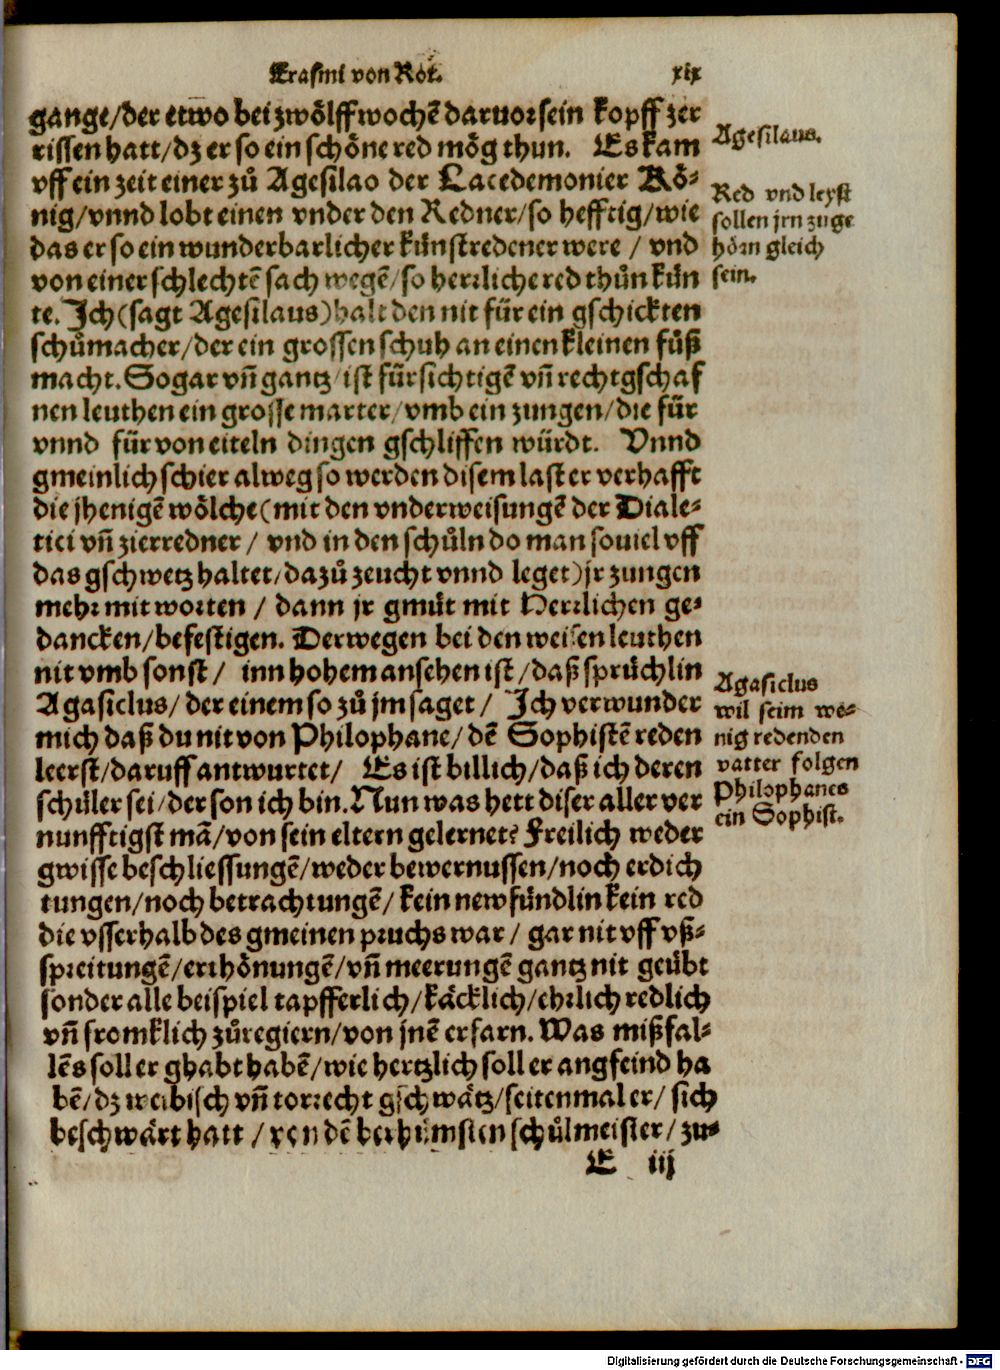 Erasmi von Rot.
xix
gange/der etwo bei zwölff wochẽ daruor sein kopff zer
rissen hatt/dz er so ein schöne red mög thun. Es kam
vff ein zeit einer zů Agesilao der Lacedemonier Kö⸗
nig/vnnd lobt einen vnder den Redner/so hefftig/wie
das er so ein wunderbarlicher künstredener were / vnd
von einer schlechtẽ sach wegẽ/so herrliche red thůn kün
te. Ich (sagt Agesilaus) halt den nit für ein gschickten
schůmacher/der ein grossen schuh an einen kleinen fůß
macht. Sogar vñ gantz/ist fürsichtigẽ vñ rechtgschaf
nen leuthen ein grosse marter/vmb ein zungen/die für
vnnd für von eiteln dingen gschliffen würdt. Vnnd
gmeinlich schier alweg so werden disem laster verhafft
die jhenigẽ wölche (mit den vnderweisungẽ der Diale⸗
tici vñ zierredner / vnd in den schůln do man souiel vff
das gschwetz haltet/dazů zeucht vnnd leget) jr zungen
mehr mit worten / dann jr gmüt mit Herrlichen ge⸗
dancken/befestigen. Derwegen bei den weisen leuthen
nit vmb sonst/ inn hohem ansehen ist/daß sprüchlin
Agasiclus/ der einem so zů jm saget / Ich verwunder
mich daß du nit von Philophane/ dẽ Sophistẽ reden
leerst/daruff antwurtet/ Es ist billich/daß ich deren
schüler sei/der son ich bin. Nun was hett diser aller ver
nunfftigst mã/von sein eltern gelernet? Freilich weder
gwisse beschliessungẽ/weder bewernussen/noch erdich
tungen/noch betrachtungẽ/ kein new fündlin kein red
die vsserhalb des gmeinen pruchs war / gar nit vff vß⸗
spreitungẽ/erthönungẽ/vñ meerungẽ gantz nit geübt
sonder alle beispiel tapfferlich/käcklich/ehrlich redlich
vñ fromklich zůregiern/von jnẽ erfarn. Was mißfal⸗
lẽs soll er ghabt habẽ/wie hertzlich soll er angfeind ha
bẽ/dz weibisch vñ torrecht gschwätz/seitenmal er/ sich
beschwärt hatt / von dẽ berhümsten schůlmeister/ zu⸗
E iij
Agesilaus.
Red vnd leyst
sollen jrn zuge
hörn gleich
sein.
Agasiclus
wil seim we⸗
nig redenden
vatter folgen
Philophanes
ein Sophist.
Digitalisierung gefördert durch die Deutsche Forschungsgemeinschaft - DFG